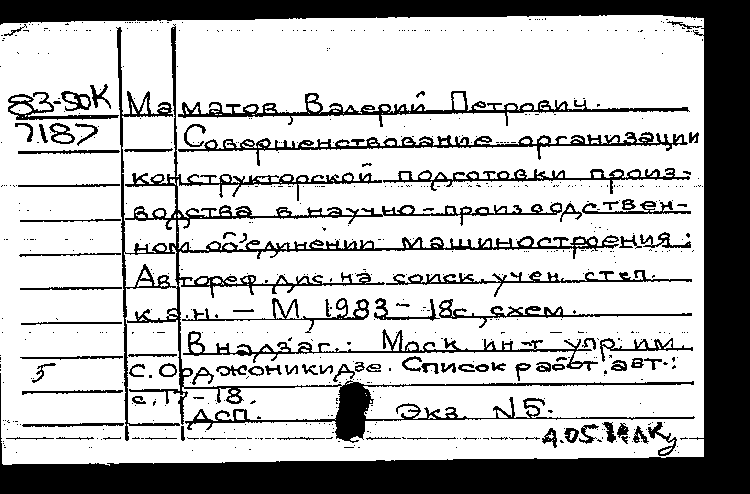 83-50К Маматов, Валерий Петрович.
7187 Совершенствование организации
конструкторской подготовки произ-
водства в научно-производствен-
ном объединении машиностроения:
Автореф. дис. на соиск. учен. степ.
к.э.н. - М, 1983 - 18с., схем.
В надзаг.: Моск. ин-т упр. им.
5 С. Орджоникидзе. Список работ авт.:
с. 17-18.
ДСП. Экз. N5.